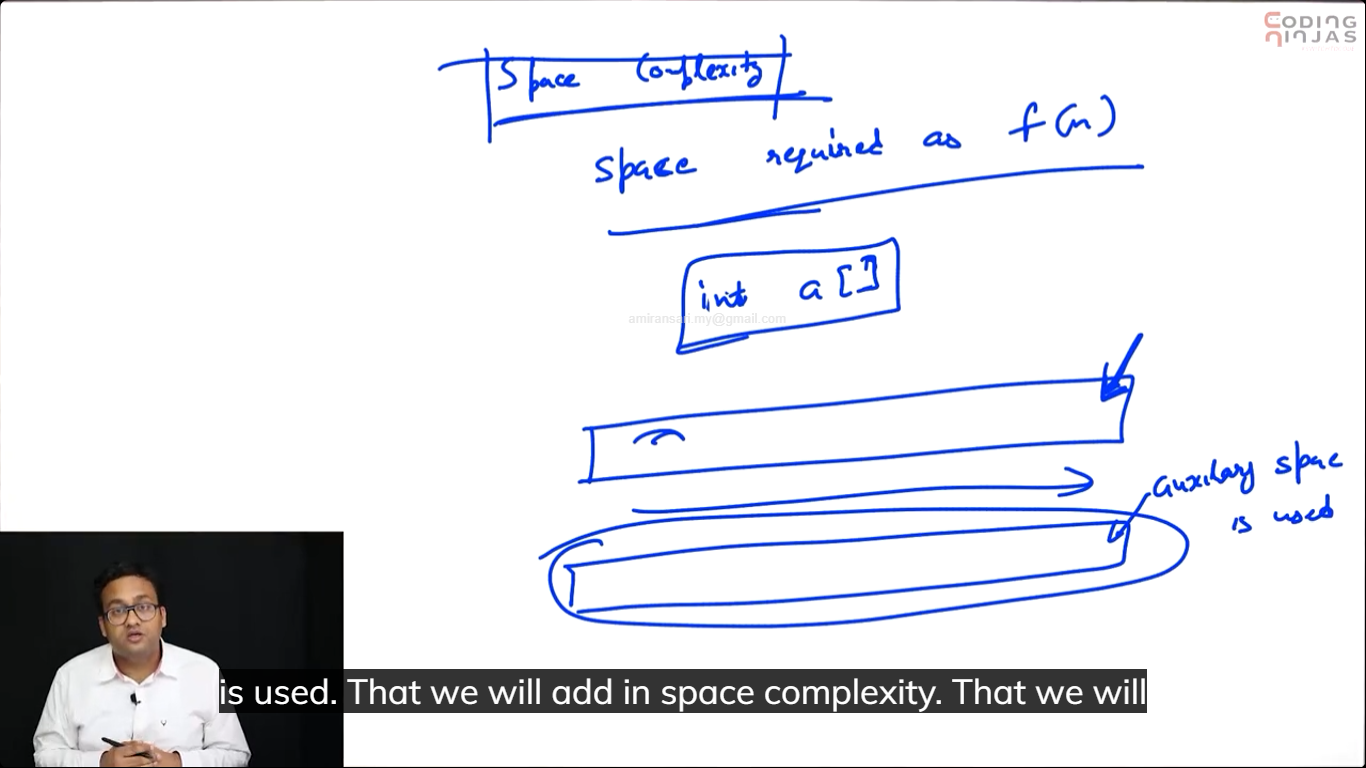 CODING
NINJAS
Space Complexity
Space required as f(n)
int a[]
amiransari.my@gmail.com
auxilary space
is used
is used. That we will add in space complexity. That we will